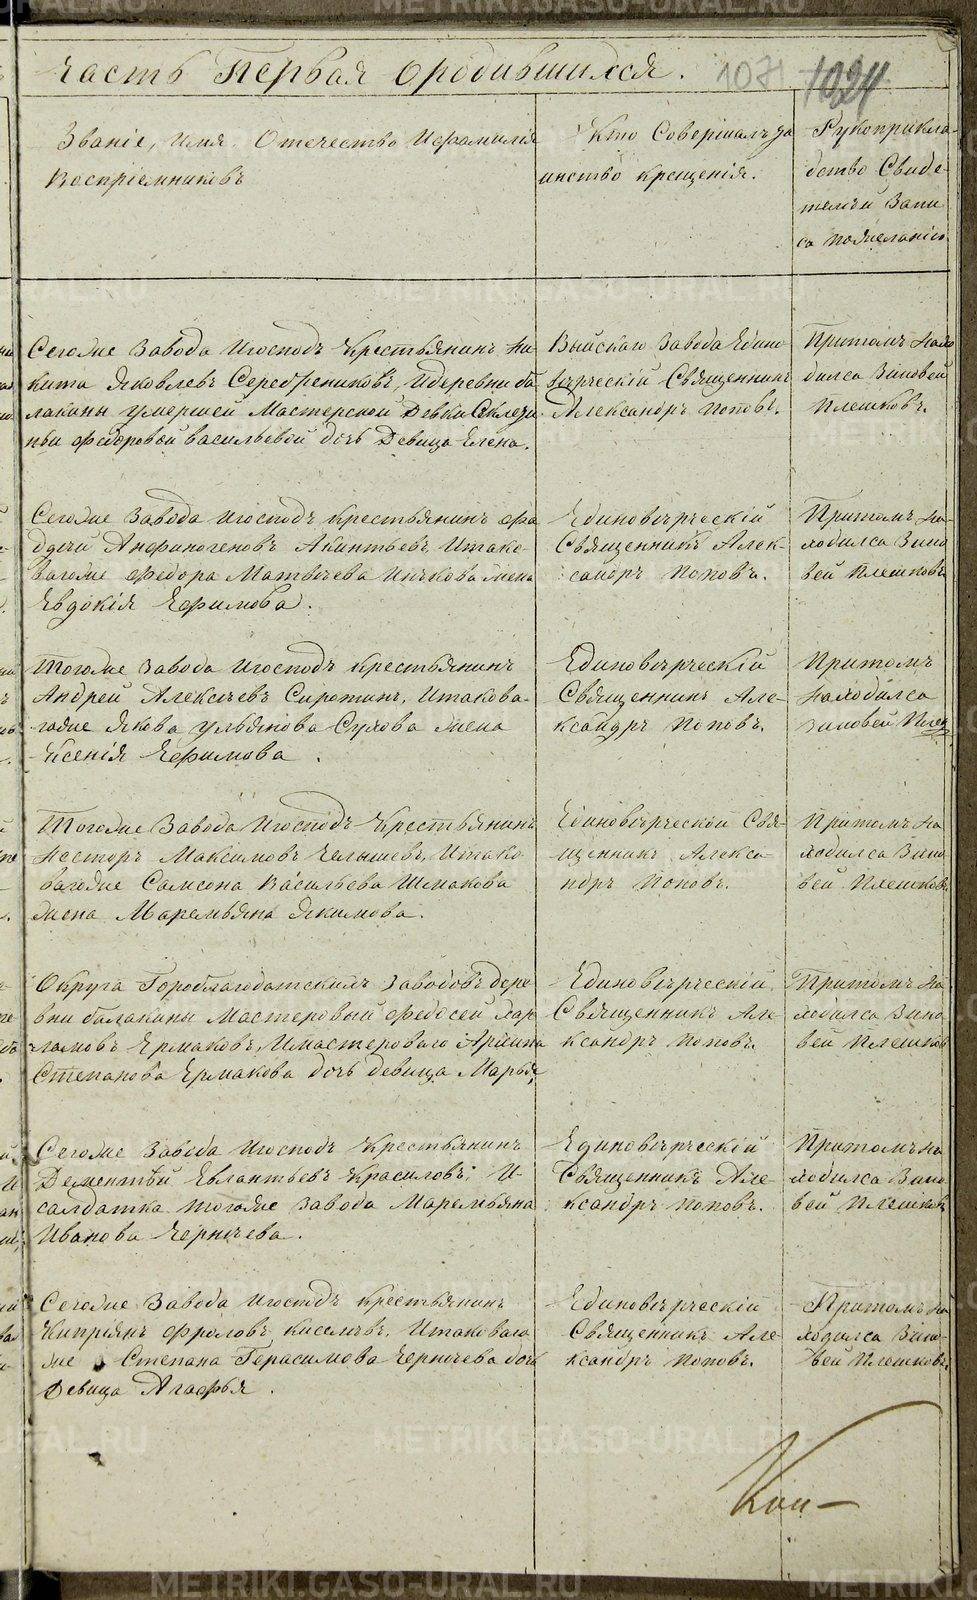 Часть Первая о родившихся. 107 1024
Званіе, Имя, Отечество И фамилія
Воспріемниковъ
Кто Совершалъ та
инство крещенія.
Рукоприкла
дство Свиде
телей Запи
са по желанію
Сегоже Завода Игосподъ Крестьянинъ Ни
кита Яковлевъ Серебрениковъ, Идеревни ба
лакины умершей Мастерской Девки Секлети
ньи федоровой васильевой дочь Девица Елена.
Выйскаго Завода Едино
верческій Священникъ
Александръ Поповъ.
Притомъ нахо
дился Зиновей
Плешковъ.
Сегоже Завода Игосподъ крестьянинъ фа
дей Анфиногеновъ Акинтьевъ, Итако
вагоже федора Матвеева жена
Евдокія Ефимова.
Единоверческій
Священникъ Алек
сандръ Поповъ.
Притомъ на
ходился Зино
вей Плешковъ
Тогоже Завода Игосподъ крестьянинъ
Андрей Алексеевъ Сиротинъ, Итакова
гоже Якова ульянова Сухова жена
Ксенія Ефимова.
Единоверческій
Священникъ Але
ксандръ Поповъ.
Притомъ
находился
Зиновей Плеш
Тогоже Завода Игосподъ Крестьянинъ
Несторъ Максимовъ Челышевъ, Итако
вагоже Самсона Васильева Шмакова
жена Маремьяна Якимова.
Единоверческой Свя
щенникъ Алекса
ндръ Поповъ.
Притомъ на
ходился Зино
вей Плешковъ
Округа Гороблагодатскихъ Заводовъ дере
вни балакины Мастеровый федосей Хар
ламовъ Ермаковъ, Имастероваго
Степанова Ермакова дочь девица Марья,
Единоверческій
Священникъ Але
ксандръ Поповъ.
Притомъ на
ходился Зино
вей Плешков
Сегоже Завода Игосподъ Крестьянинъ
Дементей Евлантьевъ Красиловъ; И
салдатка тогоже завода Маремьяна
Иванова Чернеева.
Единоверческій
Священникъ Але
ксандръ Поповъ.
Притомъ на
ходился Зино
вей Плешковъ
Сегоже Завода Игосподъ крестьянинъ
Кипріянъ Фроловъ Киселевъ, Итаковаго
же Степана Герасимова Чернеева дочь
девица Агафья.
Единоверческій
Священникъ Але
ксандръ Поповъ.
Притомъ на
ходился Зино
вей Плешковъ.
METRIKI.GASO-URAL.RU